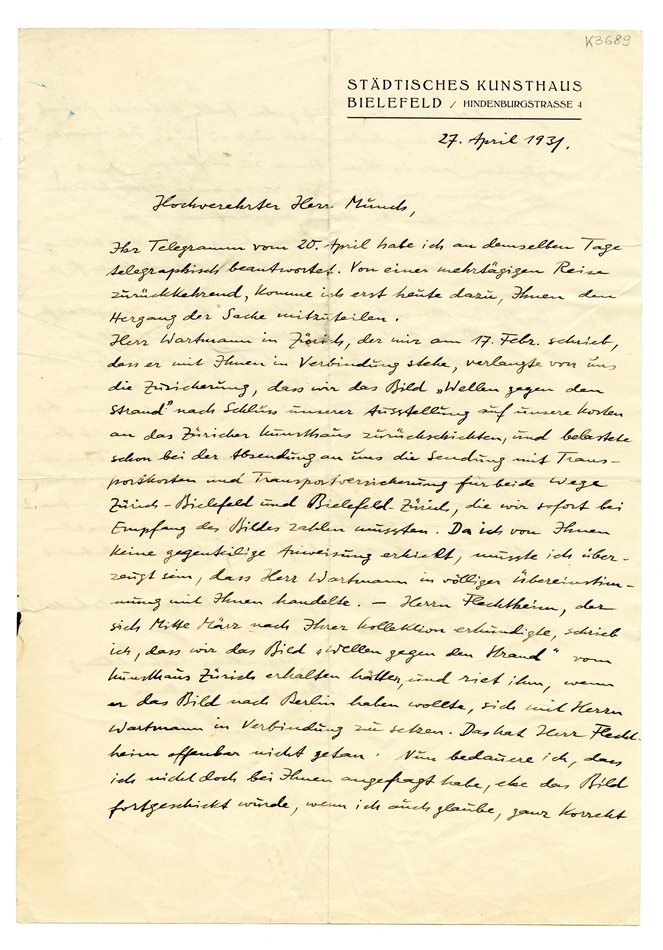 K3689
STÄDTISCHES KUNSTHAUS
BIELEFELD / HINDENBURGSTRASSE 4
27. April 1931.
Hochverehrter Herr Munch,
Ihr Telegramm vom 20. April habe ich an demselben Tage
telegraphisch beantwortet. Von einer mehrtägigen Reise
zurückkehrend, komme ich erst heute dazu, Ihnen den
Hergang der Sache mitzuteilen.
Herr Wartmann in Zürich, der mir am 17. Febr. schrieb,
dass er mit Ihnen in Verbindung stehe, verlangte von uns
die Zusicherung, dass wir das Bild „Wellen gegen den
Strand" nach Schluss unserer Ausstellung auf unsere Kosten
an das Züricher Kunsthaus zurückschickten, und belastete
schon bei der Absendung an uns die Sendung mit Trans-
portkosten und Transportversicherung für beide Wege
Zürich-Bielefeld und Bielefeld-Zürich, die wir sofort bei
Empfang des Bildes zahlen mussten. Da ich von Ihnen
keine gegenteilige Anweisung erhielt, musste ich über-
zeugt sein, dass Herr Wartmann in völliger Übereinstim-
mung mit Ihnen handelte. — Herrn Flechtheim, der
sich Mitte März nach Ihrer Kollektion erkundigte, schrieb
ich, dass wir das Bild „Wellen gegen den Strand" vom
Kunsthaus Zürich erhalten hätten, und riet ihm, wenn
er das Bild nach Berlin haben wollte, sich mit Herrn
Wartmann in Verbindung zu setzen. Das hat Herr Flecht-
heim offenbar nicht getan. Nun bedauere ich, dass
ich nicht doch bei Ihnen angefragt habe, ehe das Bild
fortgeschickt wurde, wenn ich auch glaube, ganz korrekt